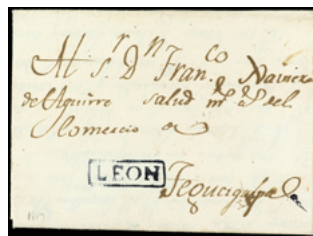 Al S.r D.n Fran.co Xavier
de Aguirre salud m.s a.s del
Comercio
LEON
Tegucigalpa
1817